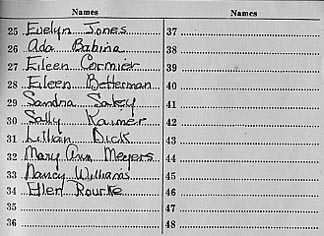 Names Names
25 Evelyn Jones 37
26 Ada Babina 38
27 Eileen Cormier 39
28 Eileen Betterman 40
29 Sandra 41
30 Sally Kaimer 42
31 Lillian Dick 43
32 Mary Ann Meyers 44
33 Nancy Williams 45
34 Ellen Rourke 46
35 47
36 48